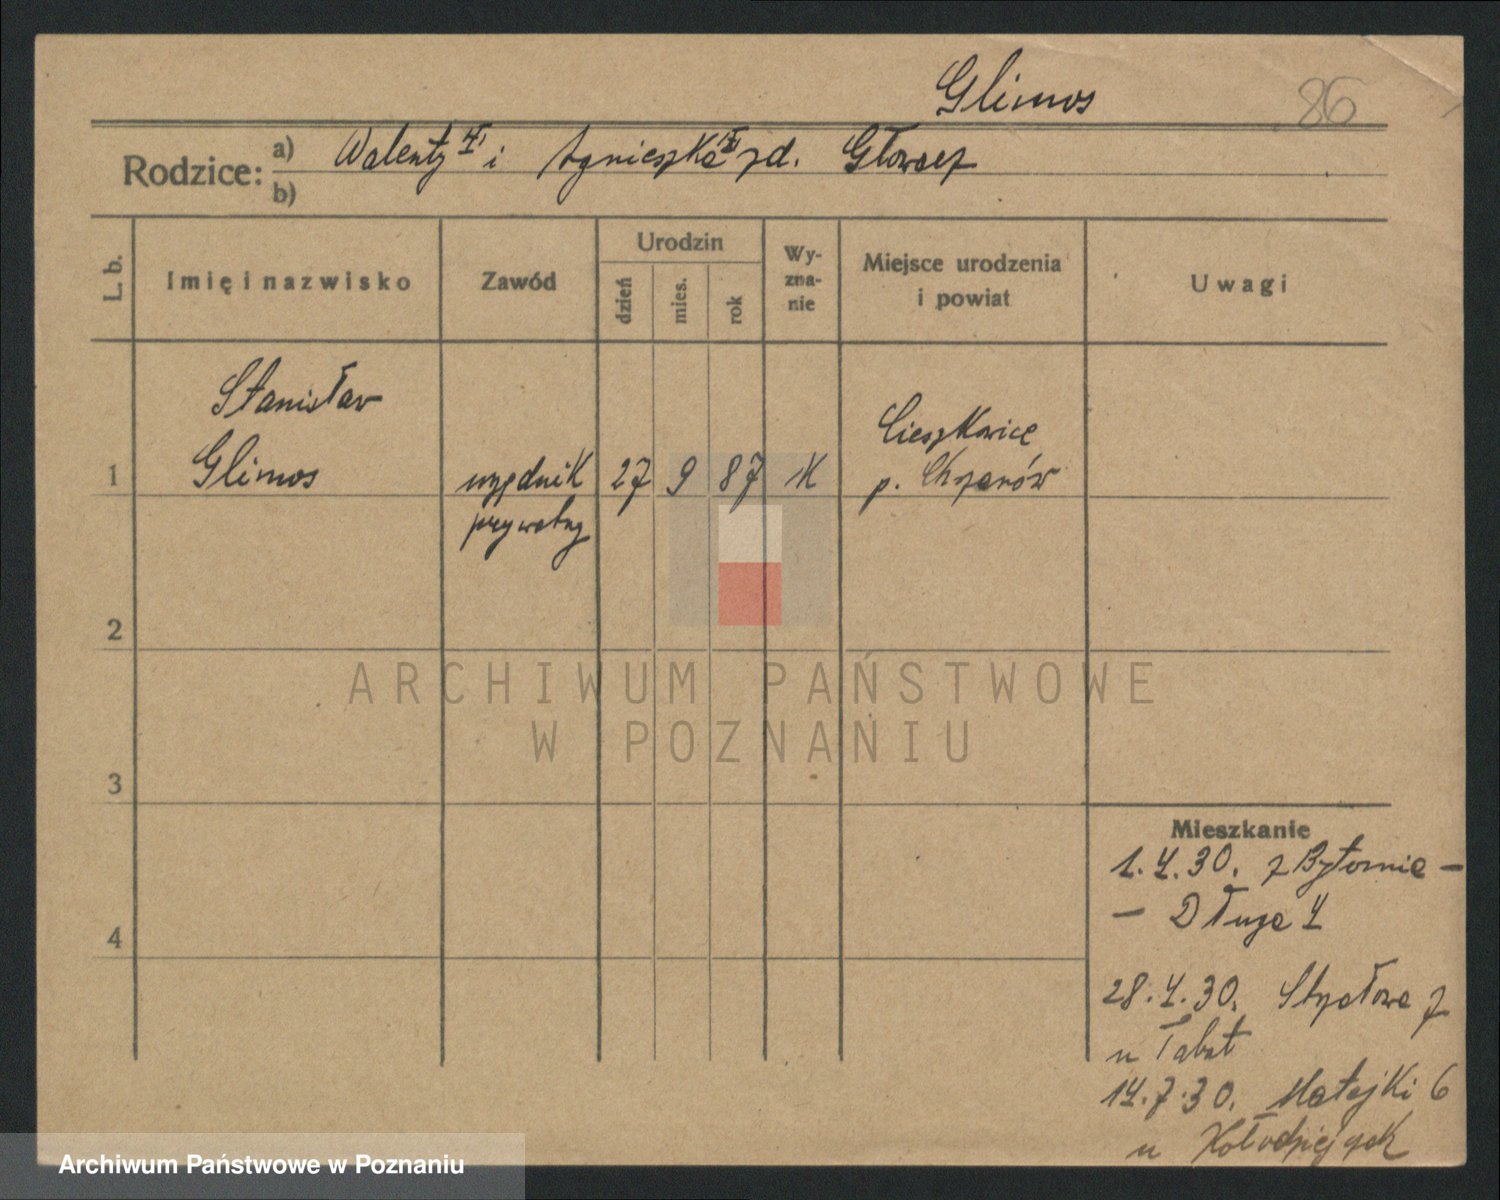 Glimos
86
Rodzice:
a) Walenty i Agnieszka zd. Głowacz
b)
L. b.
Imię i nazwisko
Zawód
Urodzin
dzień
mies.
rok
Wy-
zna-
nie
Miejsce urodzenia
i powiat
Uwagi
Stanisław
Glimos
1
urzędnik
prywatny
27 9 87 K
Cieszkowice
p. Chrzanów
2
3
4
Mieszkanie
1.4.30. z Bytomia –
– Długa 4
28.4.30. Strzałowa 7
u Tabat
14.7.30. Matejki 6
u Kołodziejczak
ARCHIWUM PAŃSTWOWE
W POZNANIU
Archiwum Państwowe w Poznaniu